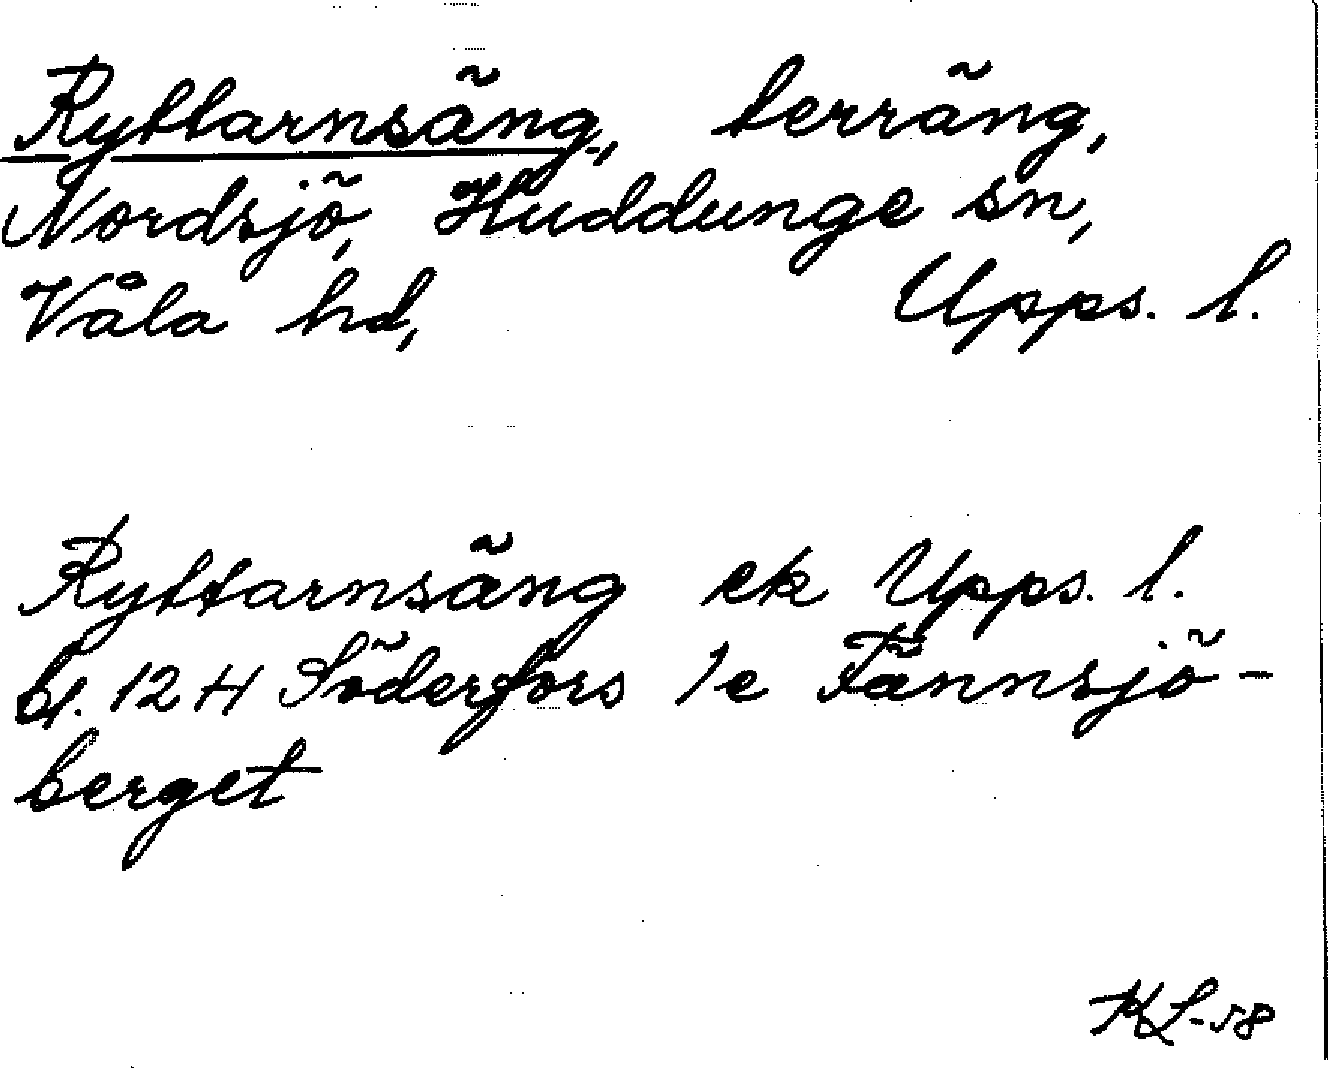 Ryttarnsäng, terräng,
Nordsjö, Huddunge sn,
Våla hd, Upps. l.
Ryttarnsäng ek Upps. l.
bl. 12 H Söderfors 1e Tännsjö-
berget
KL-58